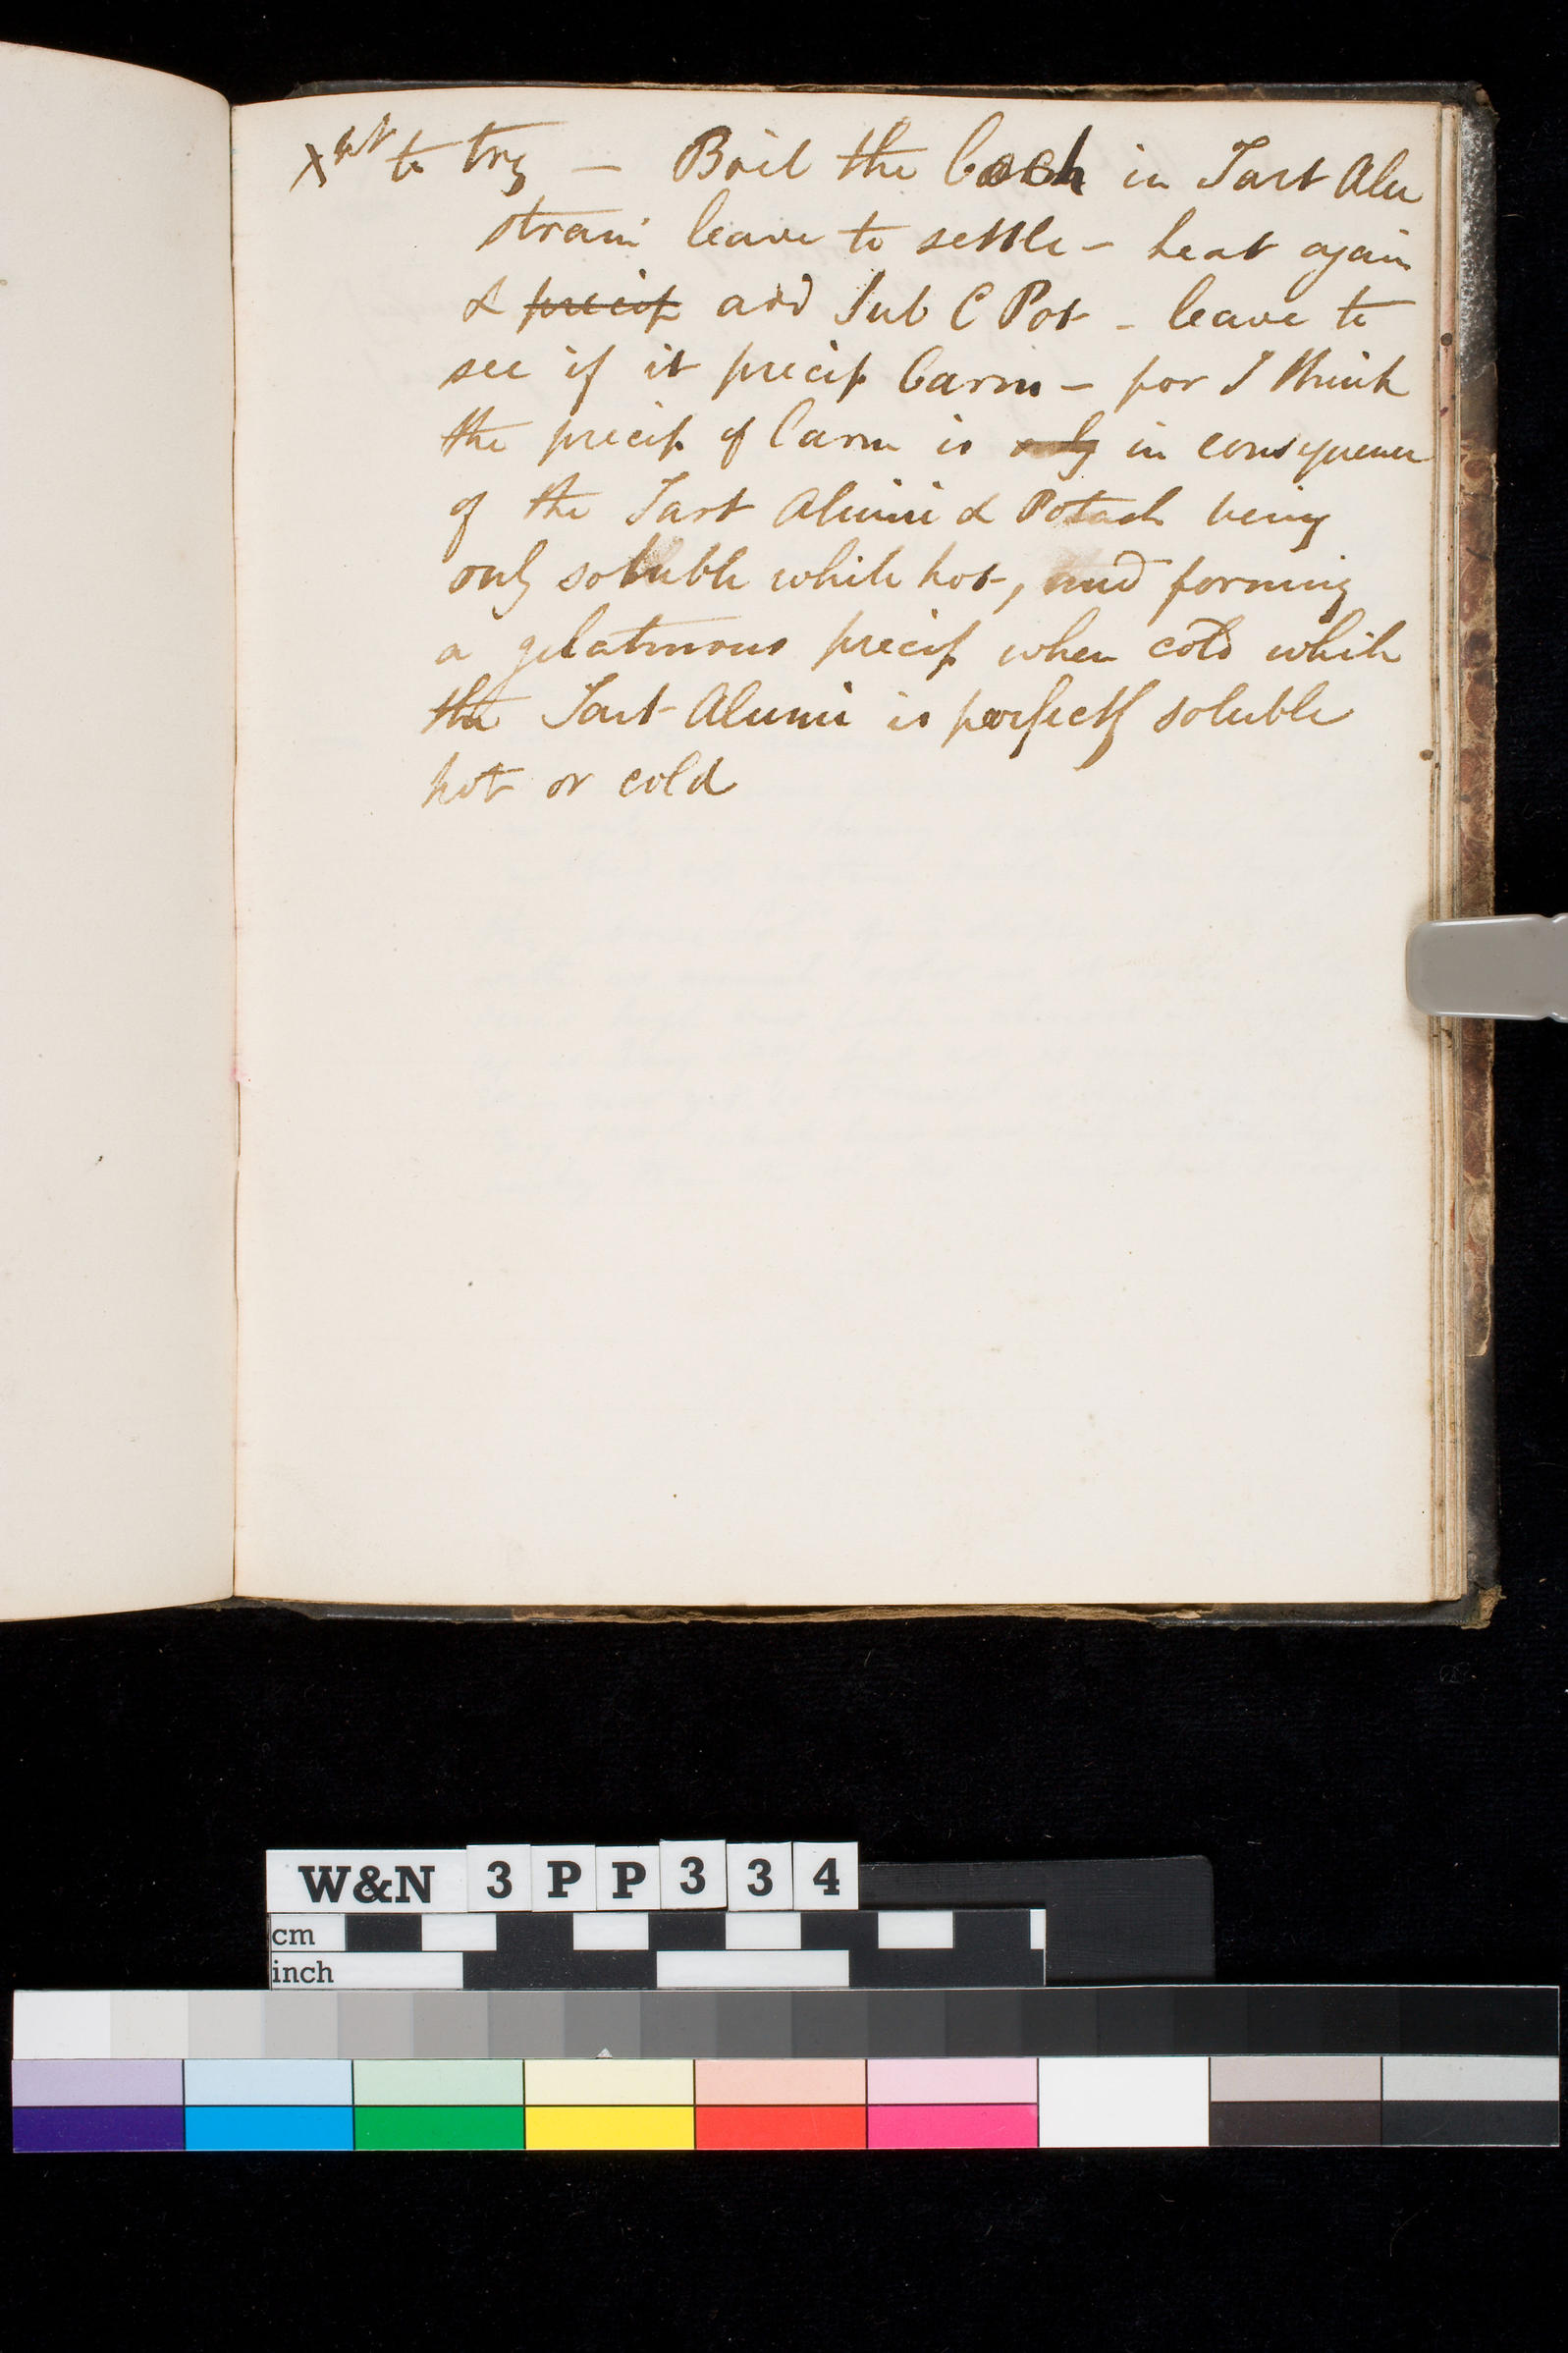 Xpt to try – Boil the Coch in Tart Alu
strain leave to settle – heat again
& precip add Sub C Pot – leave to
see if it precip Carm – for I think
the precip of Carm is only in consequence
of the Tart Alumi & Potash being
only soluble while hot, and forming
a gelatinous precip when cold while
the Tart Alumi is perfectly soluble
hot or cold
W&N 3PP334
cm
inch